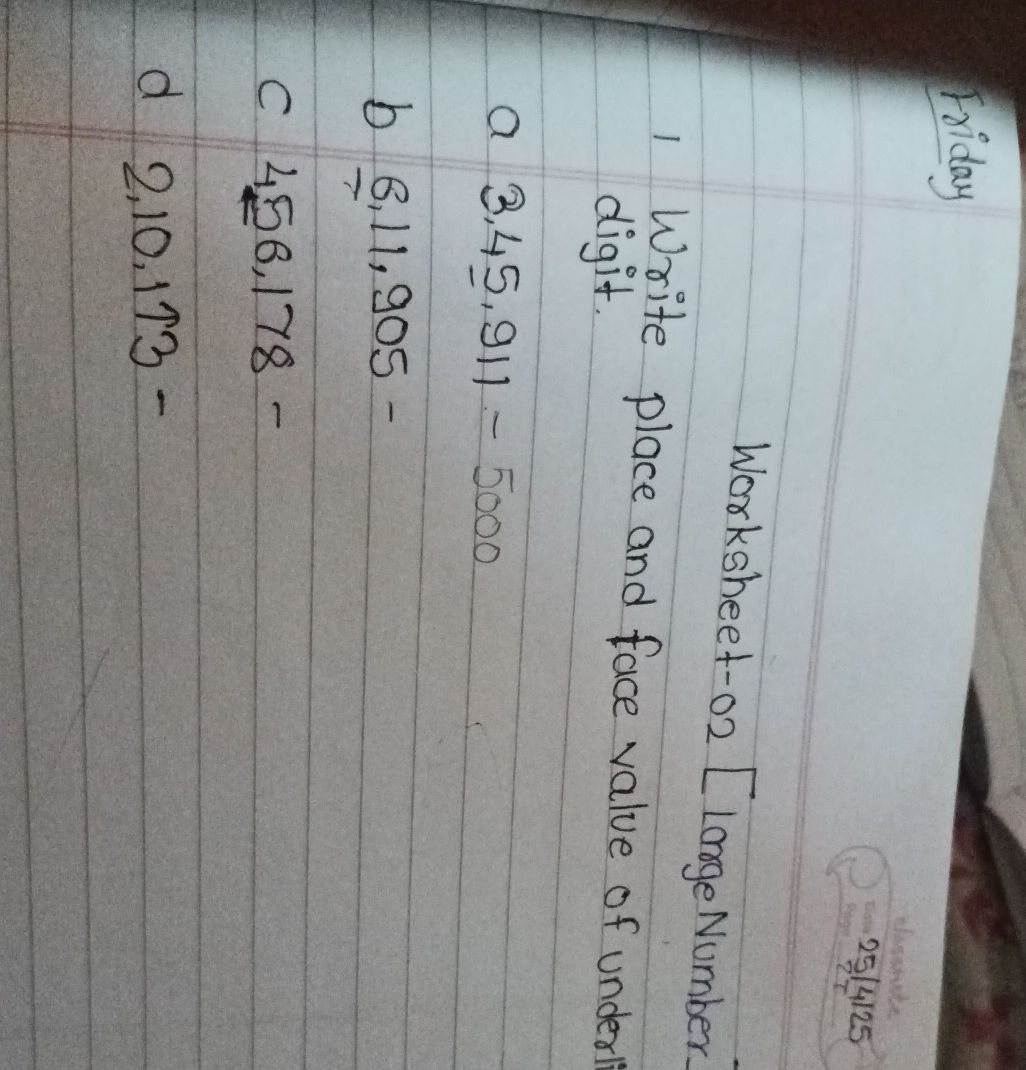 Friday
25/4/25
Worksheet-02 [Large Number
1 Write place and face value of underli
digit.
a 3,45,911 - 5000
b 6,11,905 -
c 4,56,178 -
d 2,10,113 -